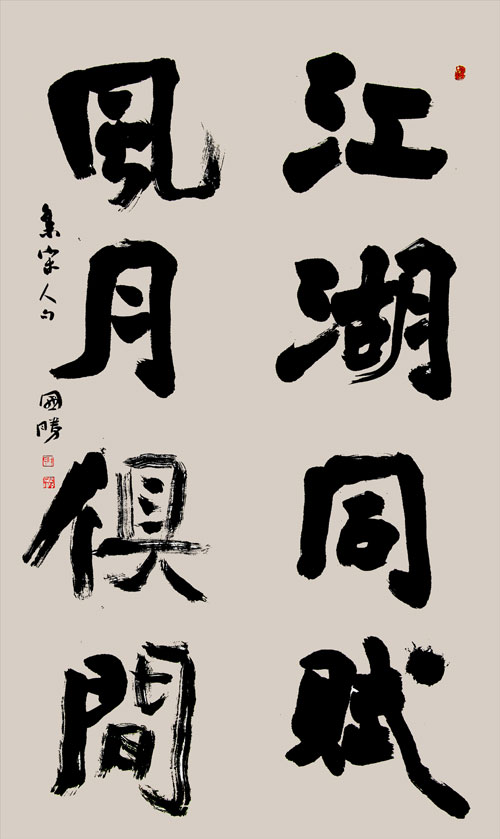 江湖同賦
風月俱間
集宋人句
國勝